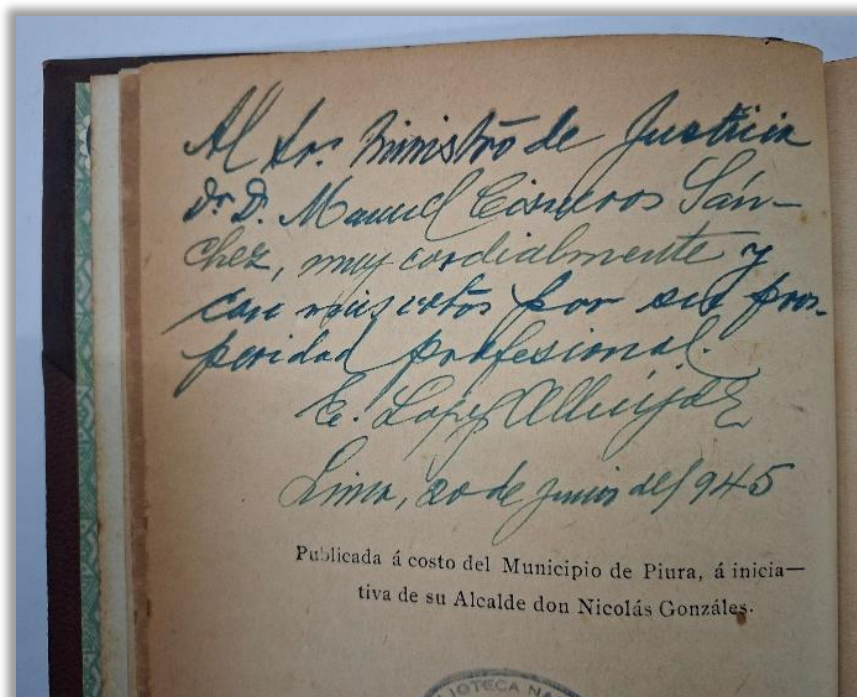 Al Sr. Ministro de Justicia
Dr. D. Manuel Cisneros Sán-
chez, muy cordialmente y
con mis votos por su pros-
peridad profesional.
E. López Albújar
Lima, 20 de junio del 945
Publicada á costo del Municipio de Piura, á inicia—
tiva de su Alcalde don Nicolás Gonzáles.
IOTECA NA